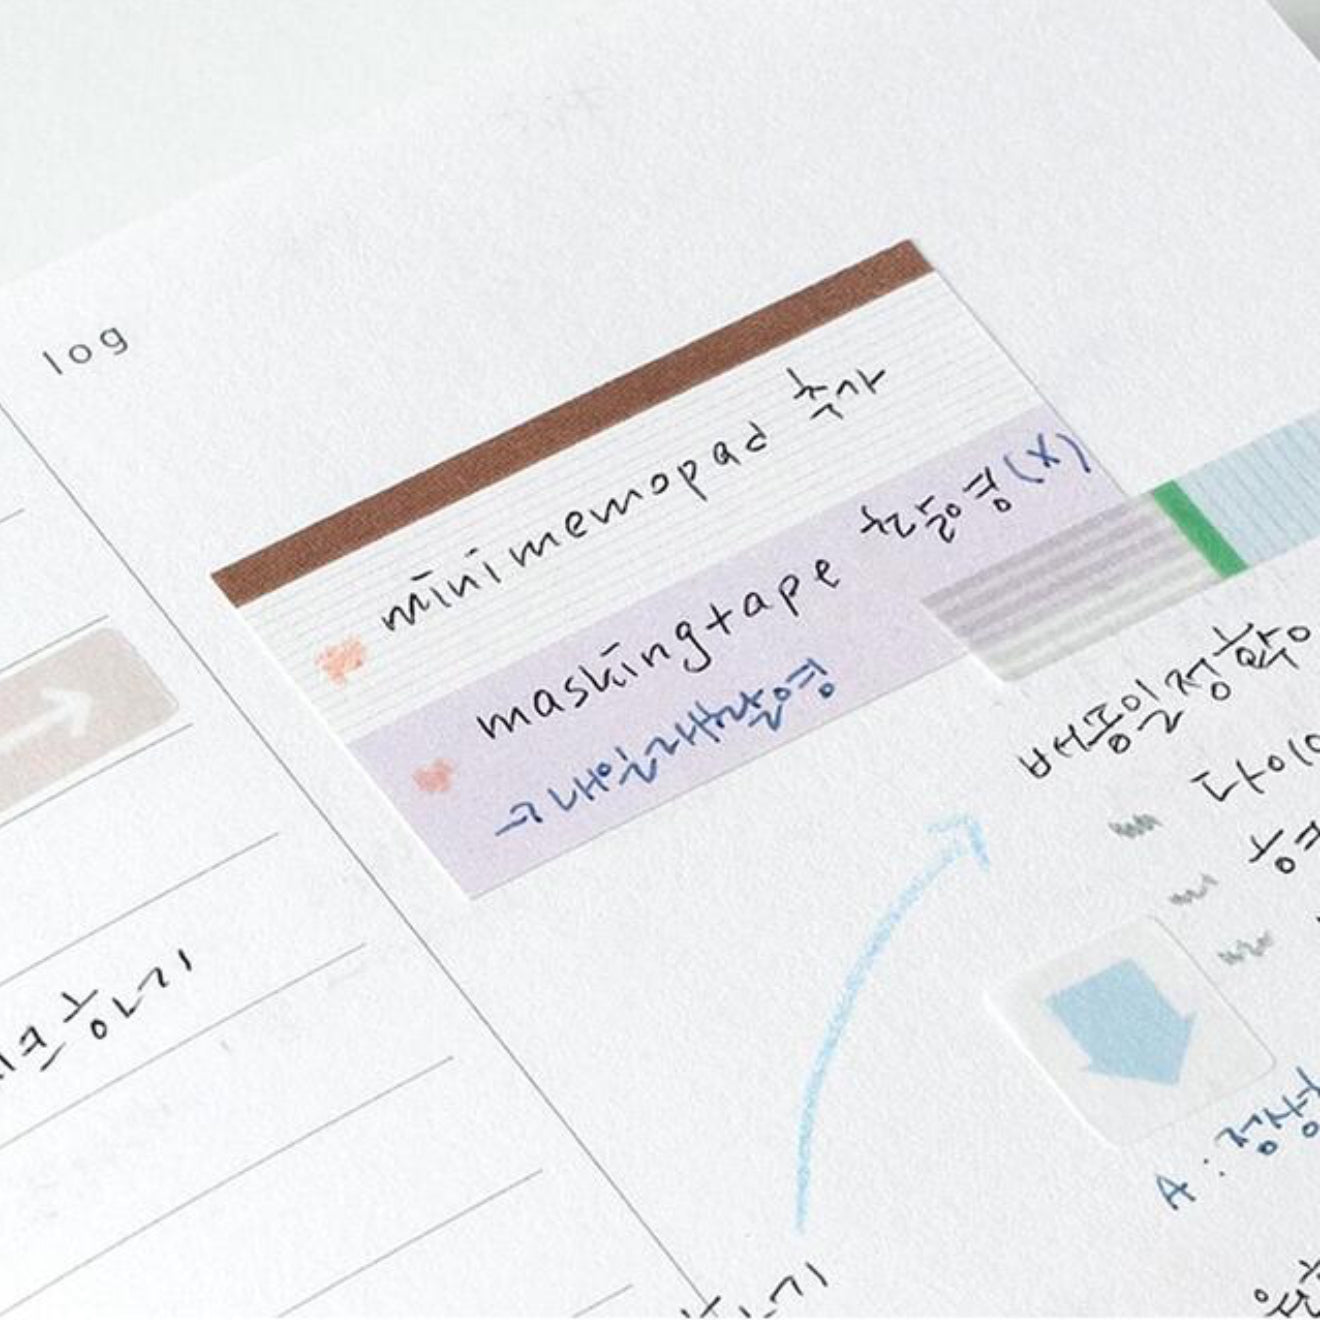 log
mini memopad 추가
maskingtape 촬영(X)
→ 내일 재촬영
체크하기
배송일정 확이
다이
하기
A : 정상